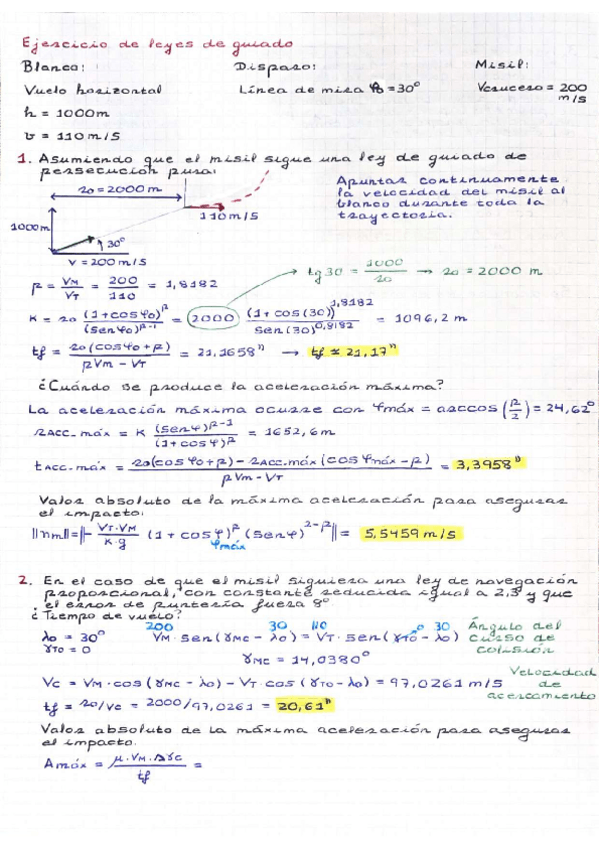 Ejercicio de leyes de guiado
Blanco: Disparo: Misil:
Vuelo horizontal Línea de mira φ₀ = 30° Vcrucero = 200 m/s
h = 1000m
v = 110 m/s
1. Asumiendo que el misil sigue una ley de guiado de
persecución pura:
r₀ = 2000 m
1000m
30°
110 m/s
v = 200 m/s
Apuntar continuamente
la velocidad del misil al
blanco durante toda la
trayectoria.
tg 30 = 1000/r₀ → r₀ = 2000 m
p = VM/VT = 200/110 = 1,8182
K = r₀ (1+cosφ₀)^p/(senφ₀)^p-1 = 2000 (1+cos(30))^1,8182/sen(30)^0,8182 = 1096,2 m
tf = r₀(cosφ₀+p)/(pVm - VT) = 21,1658" → tf ≈ 21,17"
¿Cuándo se produce la aceleración máxima?
La aceleración máxima ocurre con φmáx = arccos (p/2) = 24,62°
rACC.máx = K (senφ)^p-1/(1+cosφ)^p = 1652,6m
tACC.máx = r₀(cosφ₀+p) - rACC.máx(cosφmáx - p)/(pVm - VT) = 3,3958"
Valor absoluto de la máxima aceleración para asegurar
el impacto:
||nm|| = ||- VT·VM/K·g (1+cosφ)^p (senφ)^2-p|| = 5,5459 m/s
φmáx
2. En el caso de que el misil siguiera una ley de navegación
proporcional, con constante reducida igual a 2,3 y que
el error de puntería fuera 8°
¿Tiempo de vuelo?
λ₀ = 30°
γT0 = 0
200 30 110 0 30
VM·sen(γMC - λ₀) = VT·sen(γT0 - λ₀)
Ángulo del
curso de
colisión
γMC = 14,0380°
Vc = VM·cos(γMC - λ₀) - VT·cos(γT0 - λ₀) = 97,0261 m/s
Velocidad
de
acercamiento
tf = r₀/Vc = 2000/97,0261 = 20,61"
Valor absoluto de la máxima aceleración para asegurar
el impacto.
Amáx = μ·VM·Δγc/tf =